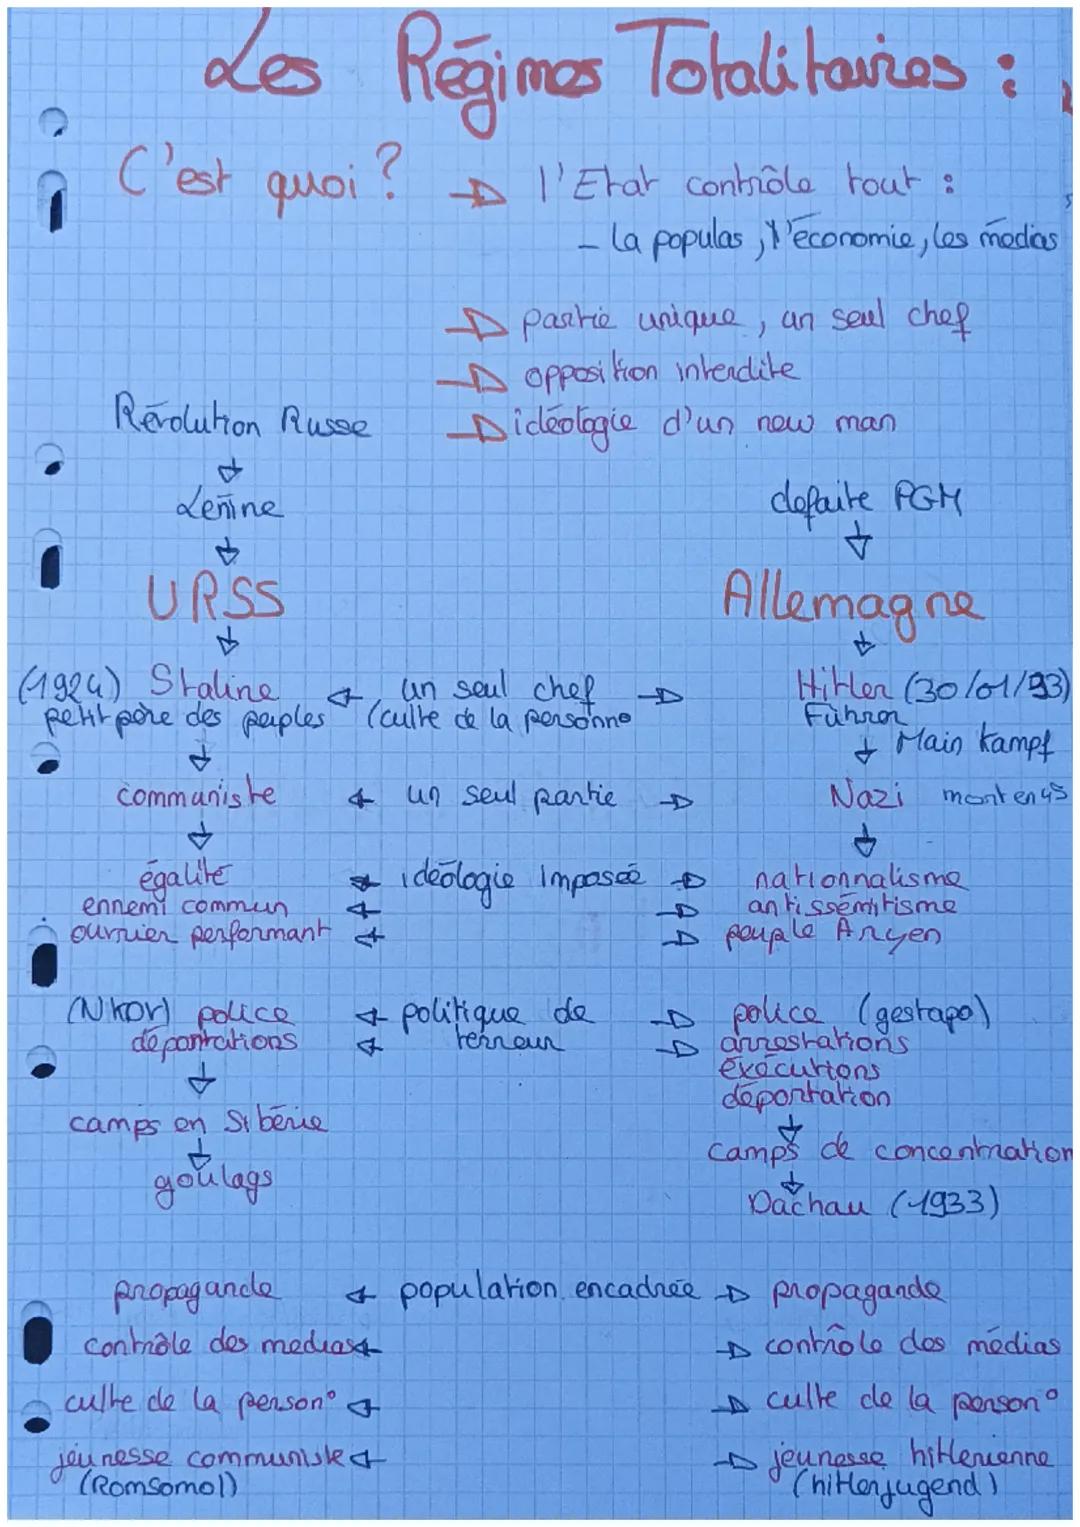 Les Régimes Totalitaires :
C'est quoi ? → l'Etat contrôle tout :
- la populas, l'économie, les médias
→ partie unique, un seul chef
→ opposition interdite
→ idéologie d'un new man
Révolution Russe
↓
Lénine
↓
URSS
↓
defaite PGM
↓
Allemagne
↓
(1924) Staline ← un seul chef → Hitler (30/01/33)
petit père des peuples (culte de la personne Führer
↓ ↓ Main Kampf
communiste ← un seul partie → Nazi mont en 45
↓ ↓
égalité ← idéologie imposée → nationnalisme
ennemi commun ← → antissémitisme
ouvrier performant ← → peuple Aryen
(Nkov) police ← politique de → police (gestapo)
déportations ← terreur → arrestations
éxécutions
déportation
↓
camps en Sibérie
↓
goulags
↓
camps de concentration
↓
Dachau (1933)
propagande ← population encadrée → propagande
contrôle des medias ← → contrôle des médias
culte de la person° ← → culte de la person°
jeunesse communiste ← → jeunesse hitlerienne
(Romsomol) (hitlerjugend)